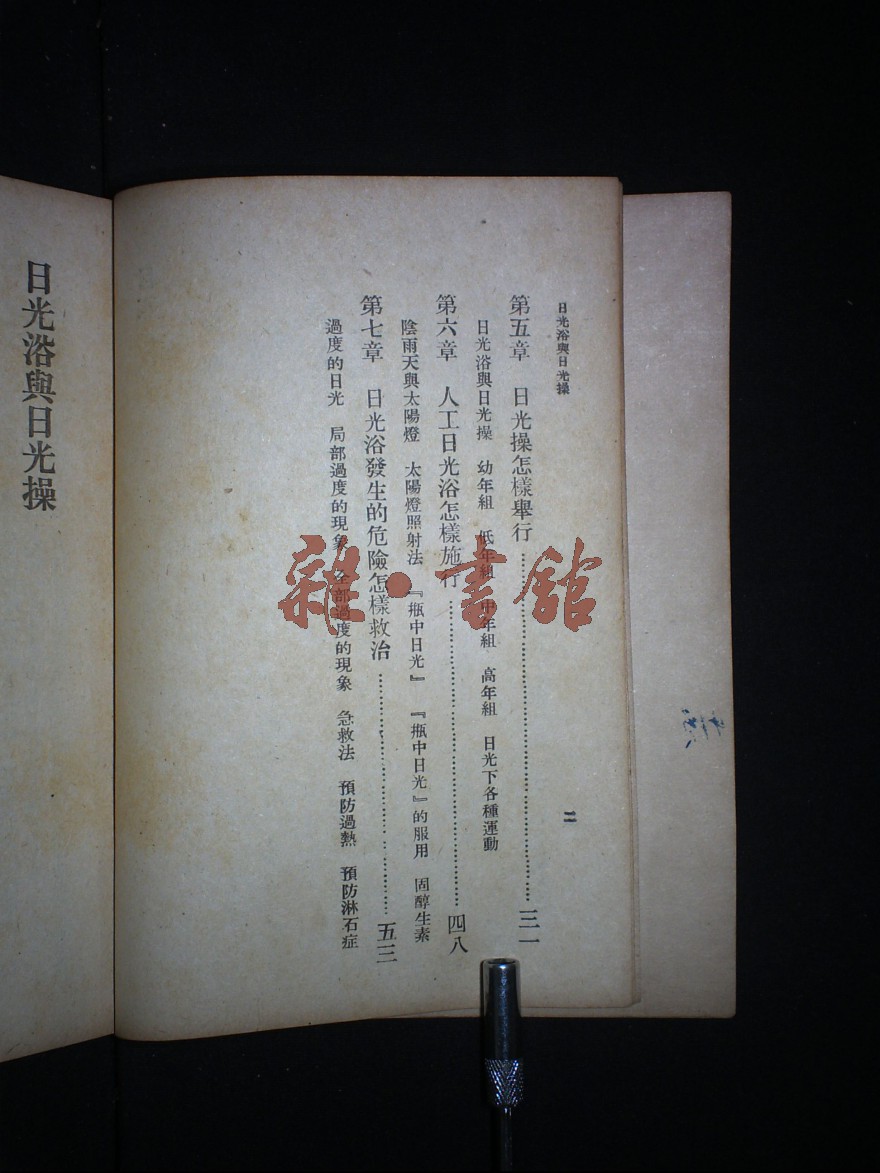 日光浴與日光操
二
第五章 日光操怎樣舉行……三一
日光浴與日光操 幼年組 低年組 中年組 高年組 日光下各種運動
第六章 人工日光浴怎樣施行……四八
陰雨天與太陽燈 太陽燈照射法 『瓶中日光』 『瓶中日光』的服用 固醇生素
第七章 日光浴發生的危險怎樣救治……五三
過度的日光 局部過度的現象 全部過度的現象 急救法 預防過熱 預防淋石症
日光浴與日光操
雜·書館